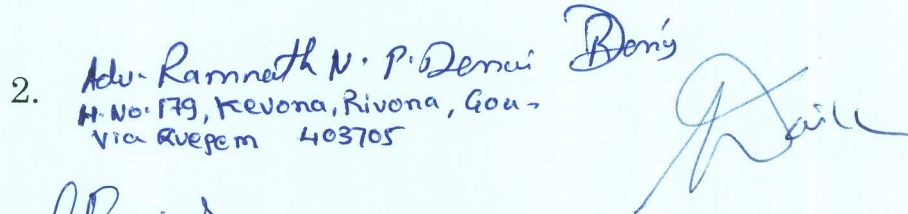 2. Adv. Ramnath N. P. Dessai
H. No. 179, Kevona, Rivona, Goa-
Via Quepem 403705